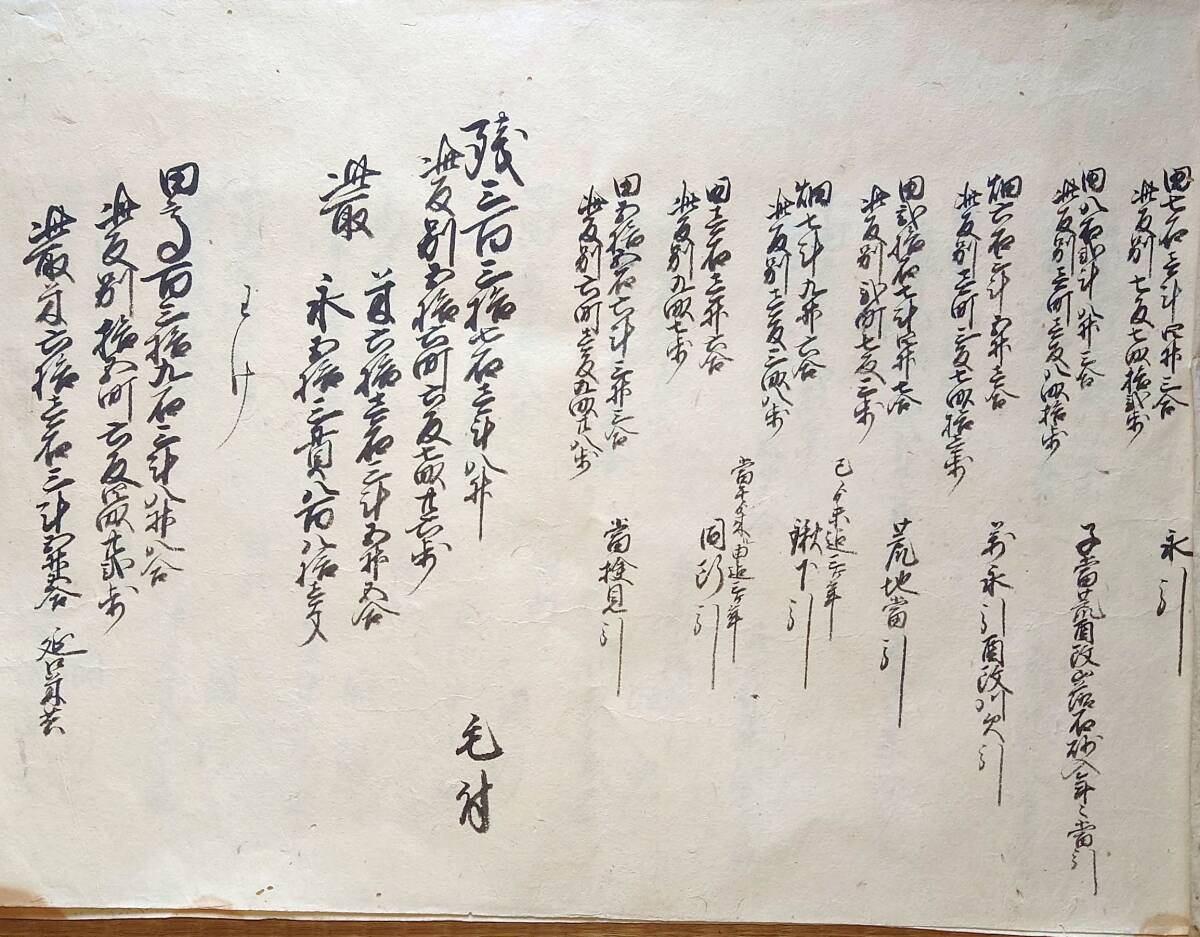 田七石壱斗四升三合
此反別七反七畝拾弐歩
永引
田八石弐斗八升三合
此反別壱町壱反八畝拾歩
子當荒酉改山崩石砂入年々當引
畑六石三斗五升壱合
此反別壱町三反七畝拾三歩
永引酉改川欠引
田弐拾石七斗四升七合
此反別弐町七反三歩
荒地當引
畑七斗九升六合
此反別壱反三畝八歩
鍬下引
田壱石壱升六合
此反別九畝七歩
同断引
田五拾五石六斗三升三合
此反別六町壱反九畝廿八歩
當検見引
残三百三拾七石壱斗八升
毛付
此反別五拾六町六反七畝廿六歩
此取
米六拾壱石三斗五升五合
永五拾三貫八百八拾壱文
わけ
田高百三拾九石三斗八升八合
此反別拾五町六反四畝廿弐歩
此取米六拾壱石三斗五升五合